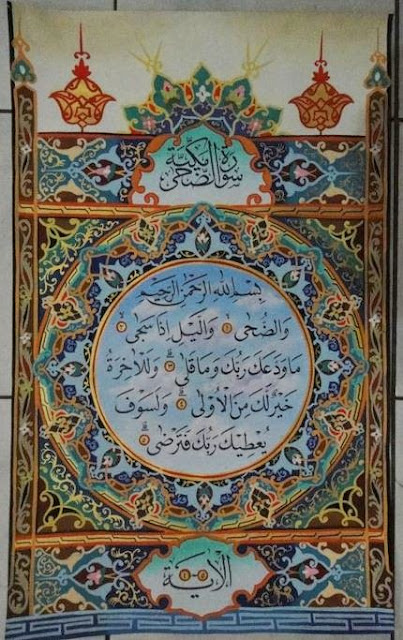 سورة الضحى مكية
بِسْمِ اللهِ الرَّحْمٰنِ الرَّحِيْمِ
وَالضُّحٰى ١ وَالَّيْلِ اِذَا سَجٰى ٢
مَا وَدَّعَكَ رَبُّكَ وَمَا قَلٰى ٣ وَلَلْاٰخِرَةُ
خَيْرٌ لَّكَ مِنَ الْاُوْلٰى ٤ وَلَسَوْفَ
يُعْطِيْكَ رَبُّكَ فَتَرْضٰى ٥
الاية